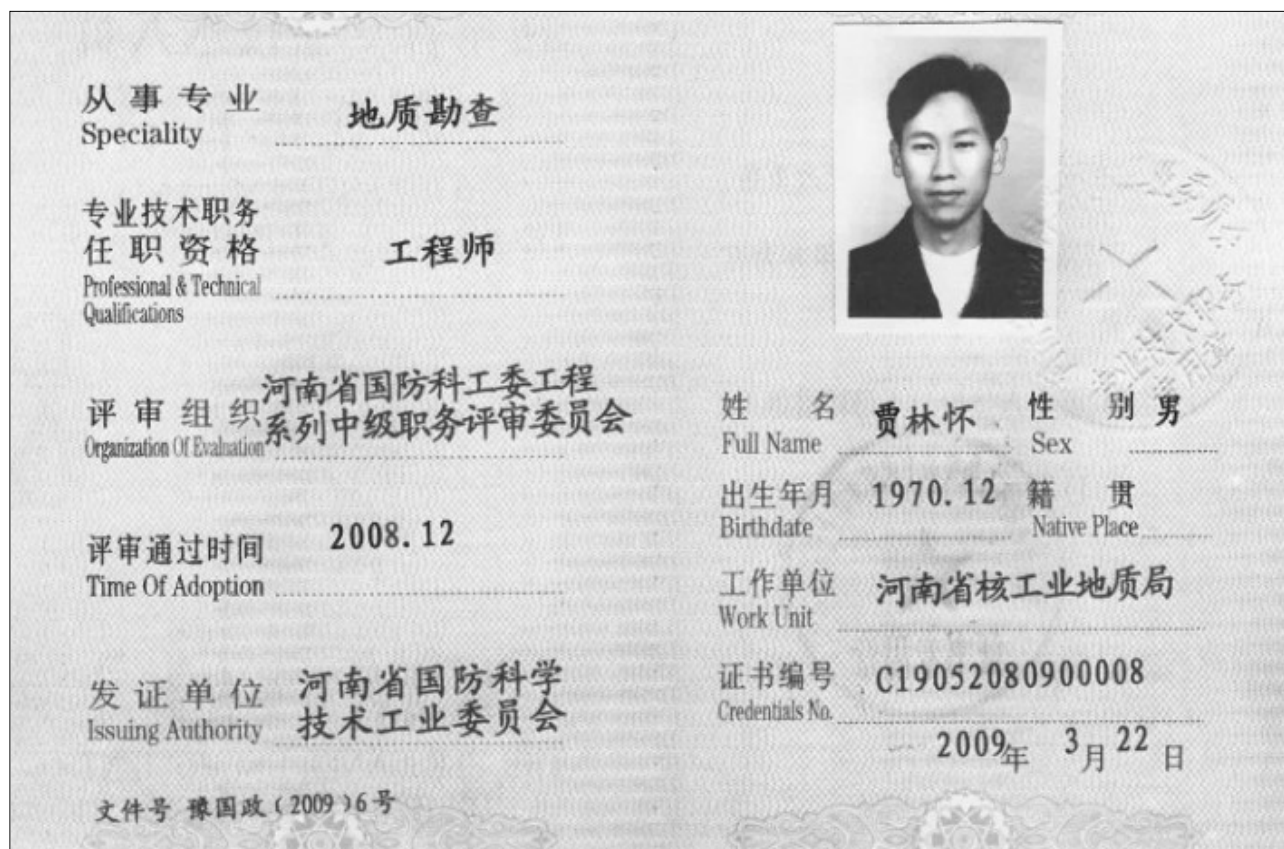 从事专业 地质勘查
Speciality
专业技术职务
任职资格 工程师
Professional & Technical
Qualifications
河南省国防科工委工程
评审组织 系列中级职务评审委员会
Organization Of Evaluation
评审通过时间 2008.12
Time Of Adoption
发证单位 河南省国防科学
Issuing Authority 技术工业委员会
文件号 豫国政(2009)6号
姓名 贾林怀 性别 男
Full Name Sex
出生年月 1970.12 籍贯
Birthdate Native Place
工作单位 河南省核工业地质局
Work Unit
证书编号 C19052080900008
Credentials No.
2009年 3月 22日